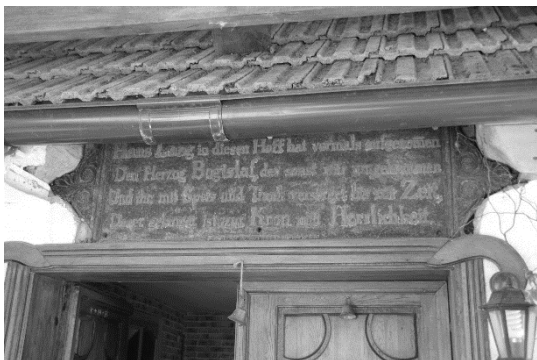 Hanns Lang in diesen Hoff hat vormals aufgenomen
Den Herzog Bugislaf, der sonst wär umgekommen
Und ihn mit Speis und Trank versorget für ein Zeit,
Daher gelangt ist zur Kron und Herrlichkeit